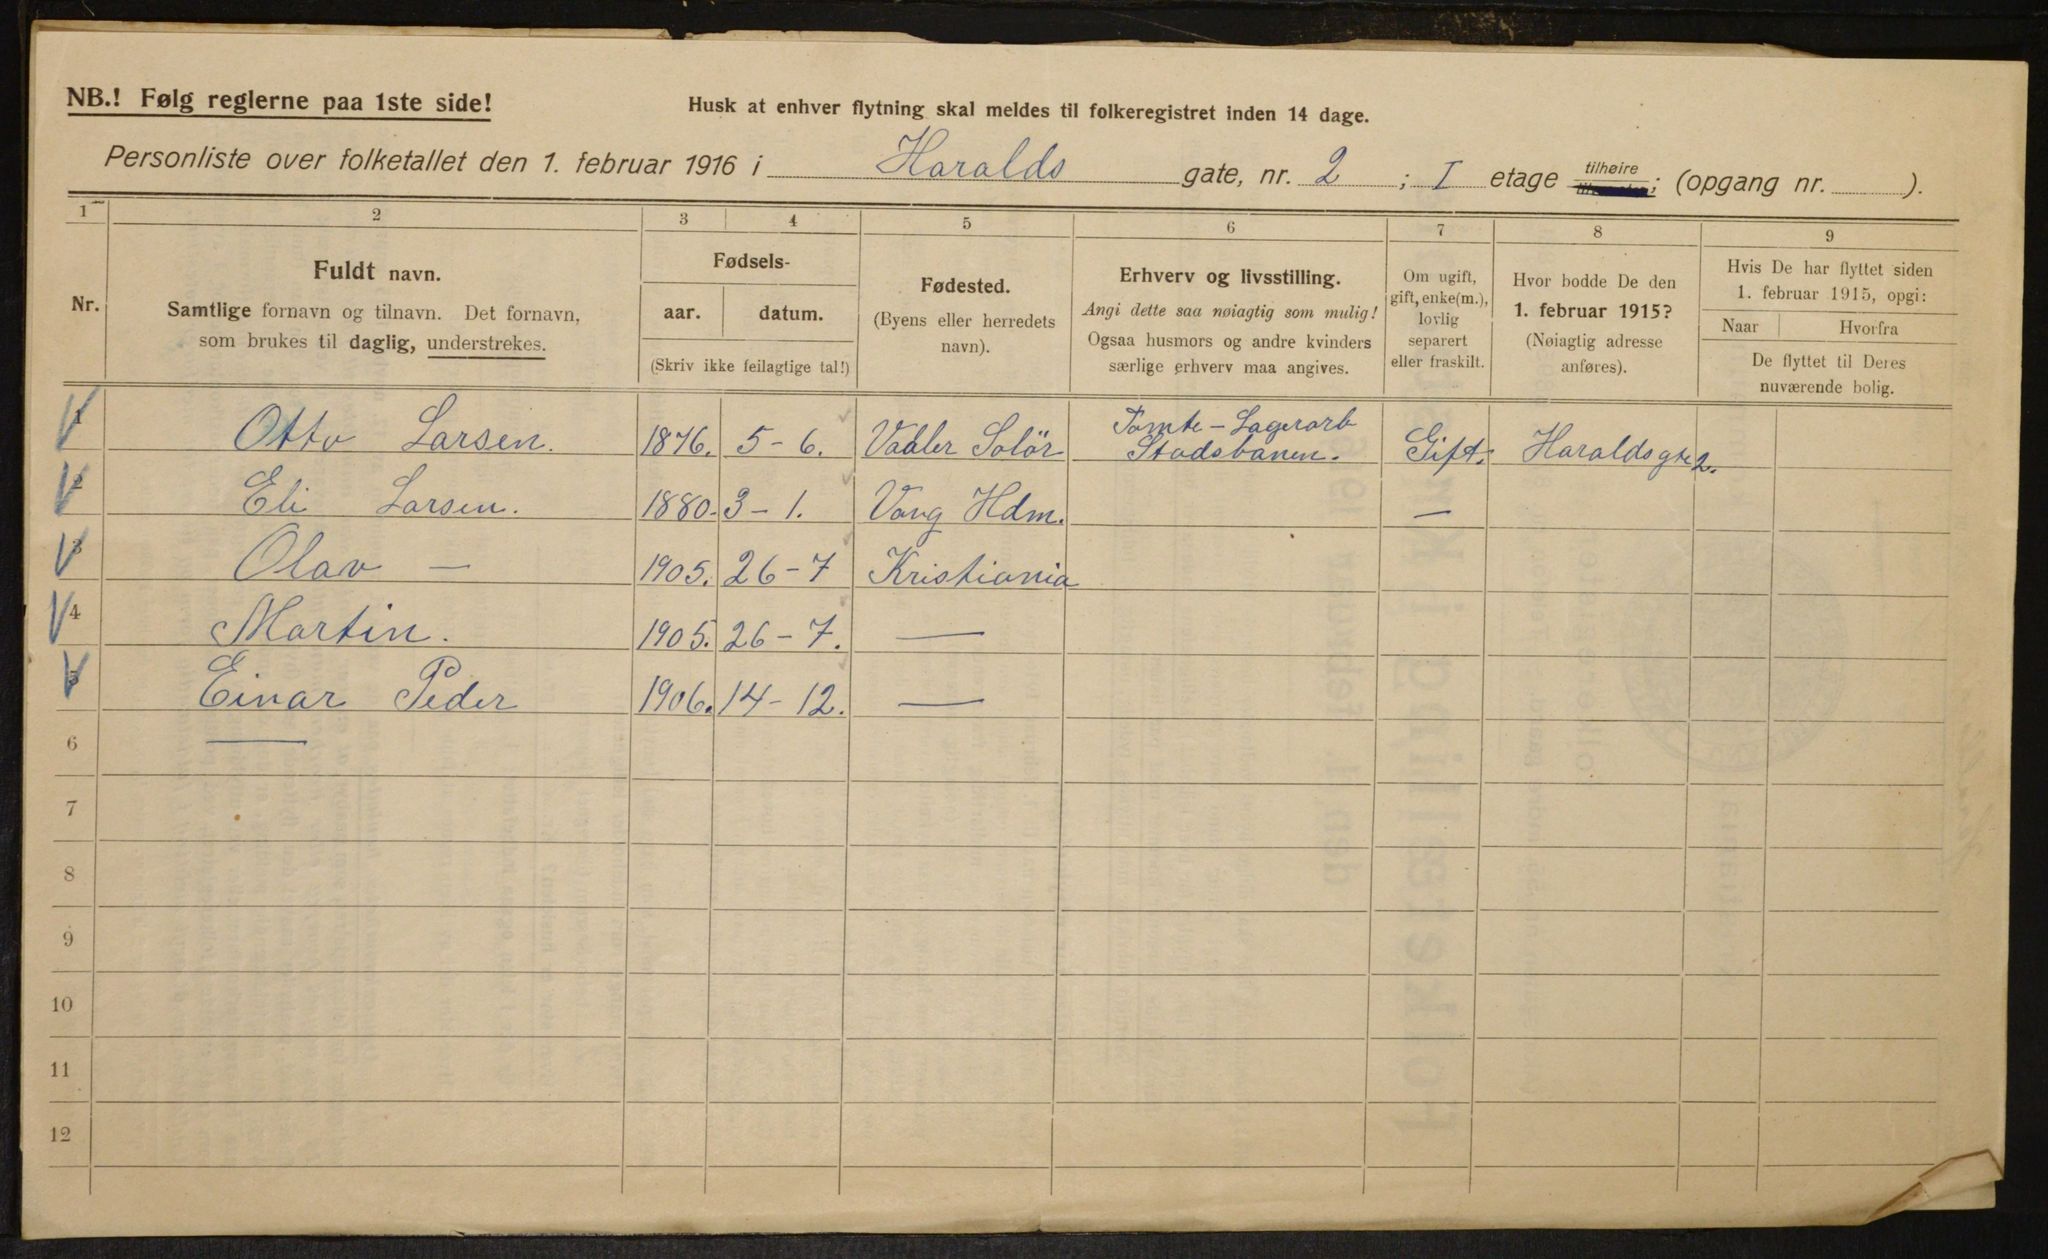 NB.! Følg reglerne paa 1ste side!
Husk at enhver flytning skal meldes til folkeregistret inden 14 dage.
Personliste over folketallet den 1. februar 1916 i Haralds gate, nr. 2 ; I etage tilhøire ; (opgang nr. ).
1 2 3 4 5 6 7 8 9
Nr.
Fuldt navn.
Samtlige fornavn og tilnavn. Det fornavn,
som brukes til daglig, understrekes.
Fødsels-
aar. datum.
(Skriv ikke feilagtige tal!)
Fødested.
(Byens eller herredets
navn).
Erhverv og livsstilling.
Angi dette saa nøiagtig som mulig!
Ogsaa husmors og andre kvinders
særlige erhverv maa angives.
Om ugift,
gift, enke(m.),
lovlig
separert
eller fraskilt.
Hvor bodde De den
1. februar 1915?
(Nøiagtig adresse
anføres).
Hvis De har flyttet siden
1. februar 1915, opgi:
Naar Hvorfra
De flyttet til Deres
nuværende bolig.
1 Otto Larsen. 1876. 5-6. Vaaler Solör Tomte-Lagerarb
Stadsbanen. Gift. Haraldsgte 2.
2 Eli Larsen. 1880. 3-1. Vang Hdm. —
3 Olav — 1905. 26-7 Kristiania
4 Martin. 1905. 26-7. —
5 Einar Peder 1906. 14-12. —
6 —
7
8
9
10
11
12